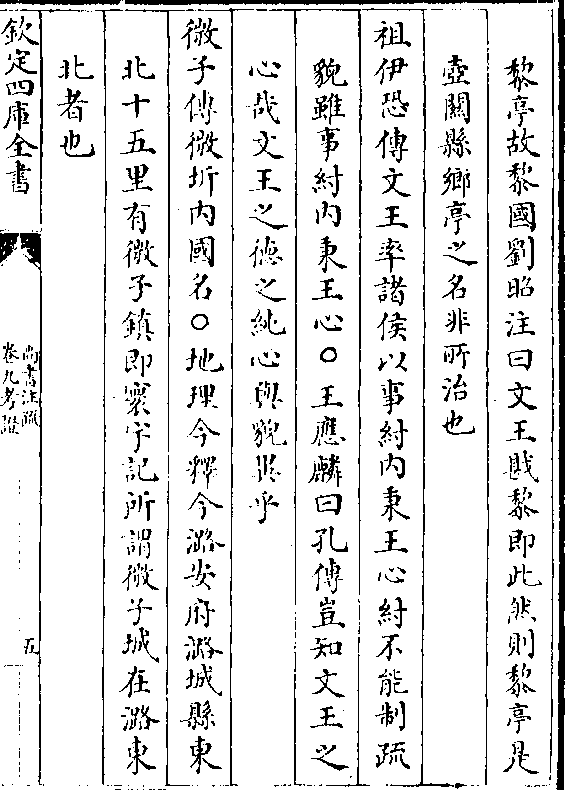 黎亭故黎國劉昭注曰文王戡黎即此然則黎亭是
壺關縣鄉亭之名非所治也
祖伊恐傳文王率諸侯以事紂内秉王心紂不能制疏
貌雖事紂内秉王心○王應麟曰孔傳豈知文王之
心哉文王之德之純心與貌異乎
微子傳微圻内國名○地理今釋今潞安府潞城縣東
北十五里有微子鎮即寰宇記所謂微子城在潞東
北者也
欽定四庫全書
尚書注疏
卷九考證
五